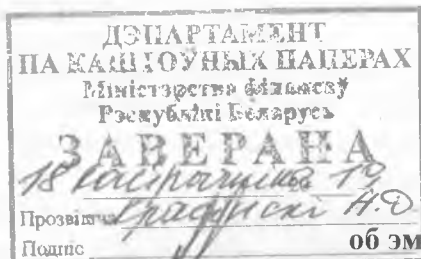 ДЭПАРТАМЕНТ
ПА КАШТОЎНЫХ ПАПЕРАХ
Міністэрства фінансаў
Рэспублікі Беларусь
ЗАВЕРАНА
18
Прозвішча
Подпіс
об эм